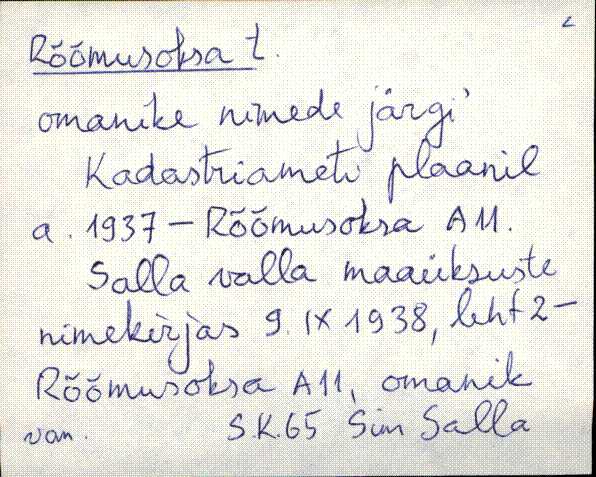 Rõõmusoksa t.
omanike nimede järgi
Kadastriameti plaanil
a. 1937 – Rõõmusoksa A11.
Salla valla maaüksuste
nimekirjas 9. IX 1938, leht 2 –
Rõõmusoksa A11, omanik
van. S.K.65 Sim Salla